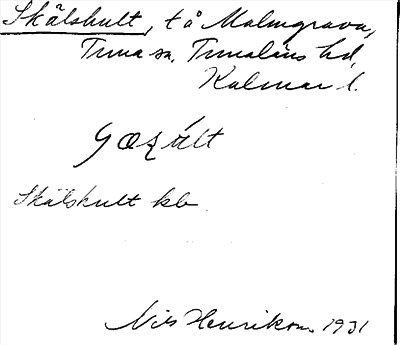 Skälshult, t å Malmgrava,
Tuna sn, Tunaläns hd,
Kalmar l.
Skälshult kb
Nils Henrikson 1931